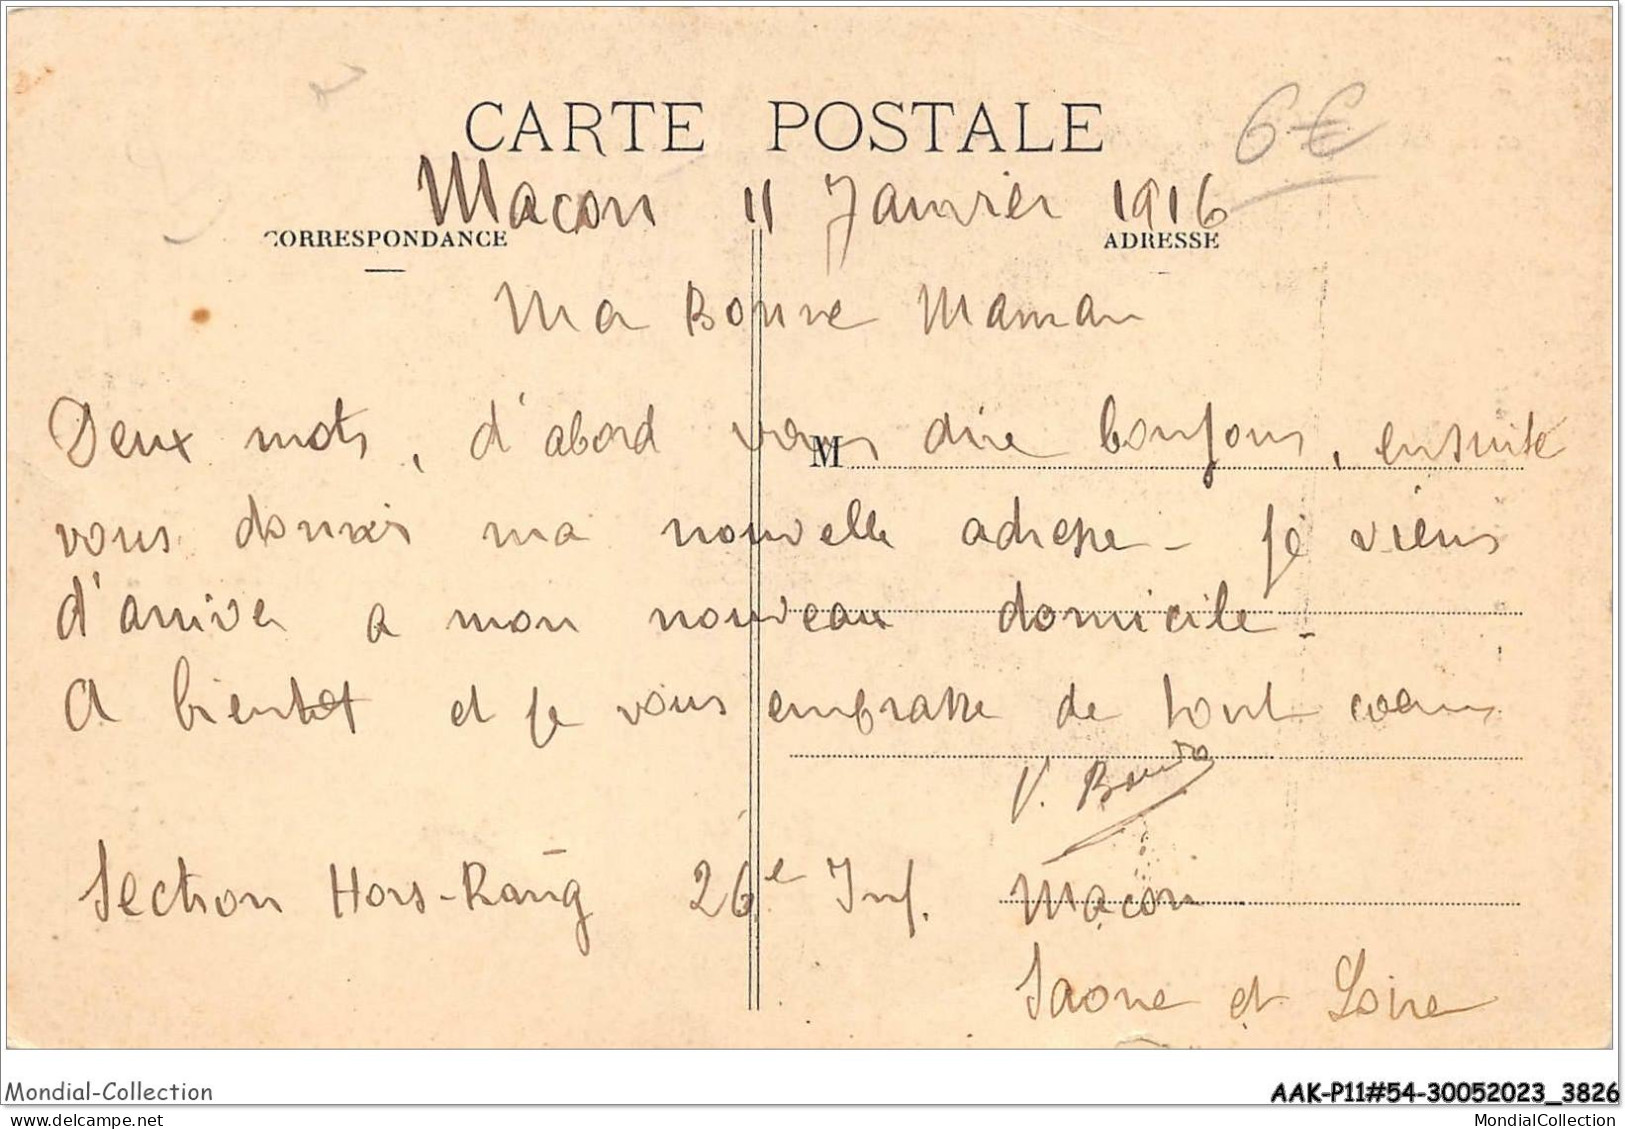 CARTE POSTALE
6€
Macon 11 Janvier 1916
CORRESPONDANCE
ADRESSE
Ma Bonne Maman
Deux mots, d'abord vous dire bonjour, ensuite
M
vous donner ma nouvelle adresse - je viens
d'arriver a mon nouveau domicile -
A bientot et je vous embrasse de tout coeur
V.
Section Hors-Rang 26e Inf. Macon
Saone et Loire
Mondial-Collection
AAK-P11#54-30052023_3826
MondialCollection